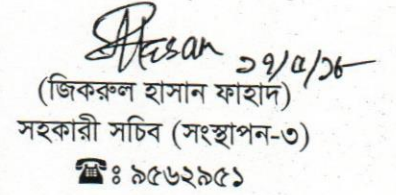 Hasan ১৭/৫/১৮
(জিকরুল হাসান ফাহাদ)
সহকারী সচিব (সংস্থাপন-৩)
☎ঃ ৯৫৬২৯৫১